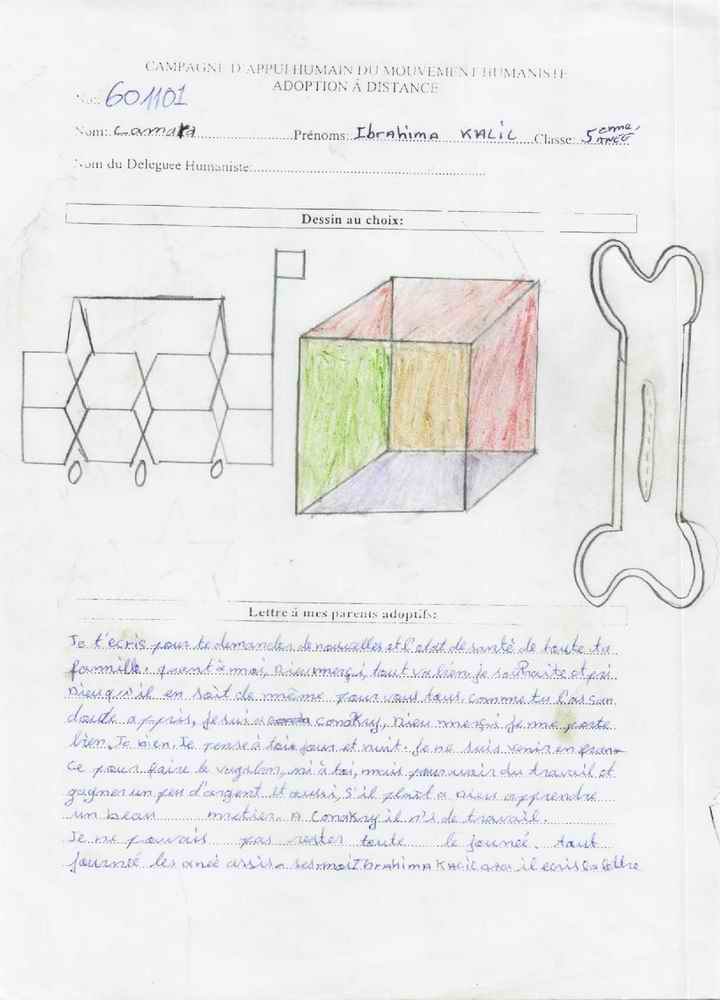 CAMPAGNE D'APPUI HUMAIN DU MOUVEMENT HUMANISTE
ADOPTION À DISTANCE
No.: 601101
Nom: Camara Prénoms: Ibrahima KALIL Classe: 5ème année
Nom du Déléguée Humaniste:
Dessin au choix:
Lettre à mes parents adoptifs:
Je t'ecris pour te demander de nouvelles et l'etat de santé de toute ta
famille. quant à moi, Dieu merçi, tout va bien. je souhaite et pri
Dieu qu'il en soit de même pour vous tous. comme tu l'as san
doute appris, je sui a Conakry, Dieu merçi je me porte
bien. Je pense à toi jour et nuit. Je ne suis venir en
ce pour faire le vagabon, ni à toi, mais pour avoir du travail et
gagner un peu d'argent et aussi, s'il plait a Dieu apprendre
un beau metier. A Conakry il n'i de travail.
Je ne pouvais pas rester toute le journé. tout
journé les assis. moi Ibrahima KALIL il ecris la lettre